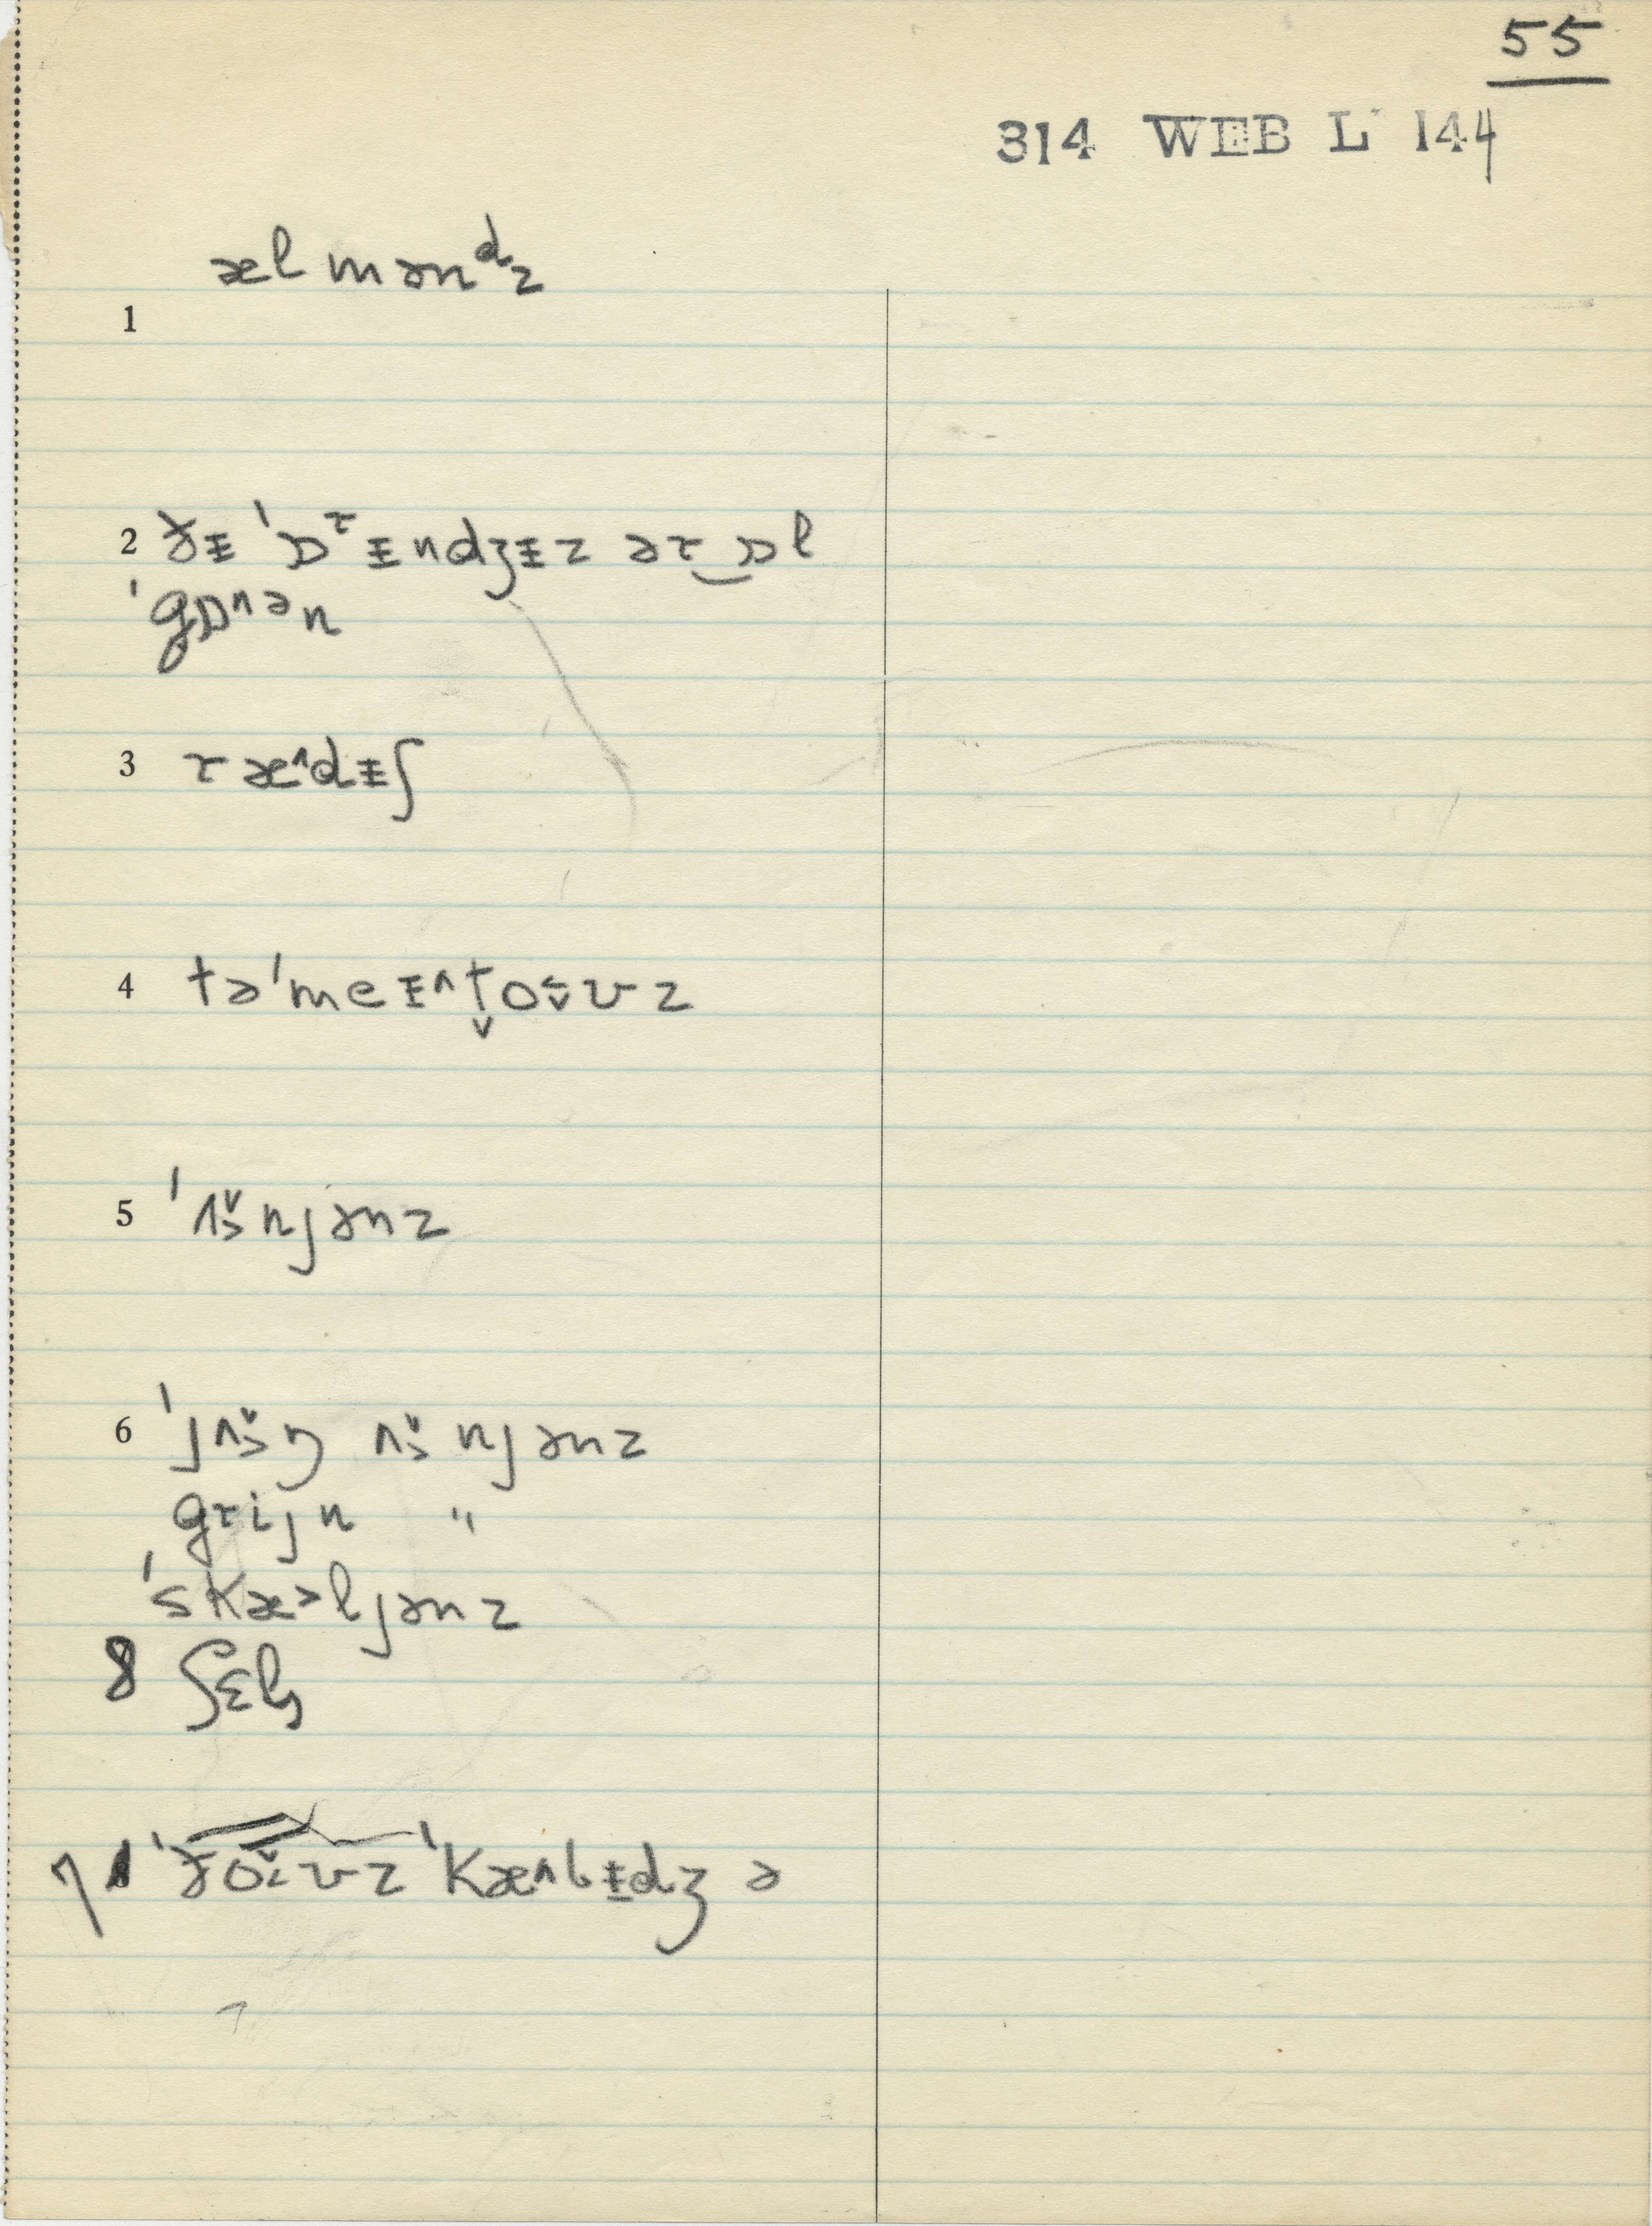 55
314 WEB L 144
ælmənᵈz
1
2 ðɨ ˈɒʳɨndʒɨz ər‿ɒl
ˈgɒ^ən
3 ræ^dɨʃ
4 təˈmeɨ^t̬oʊvz
5 ˈʌ̌njənz
6 ˈjʌ̌ŋ ʌ̌njənz
grijn "
ˈskæ>ljənz
8 ʃɛl
7 ˈðoʊvz ˈkæ^bɨdʒ ə